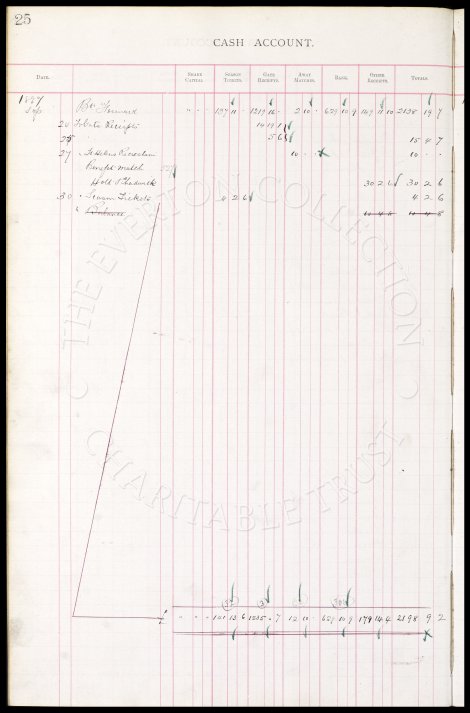 25
CASH ACCOUNT.
DATE. SHARE CAPITAL SEASON TICKETS. GATE RECEIPTS. AWAY MATCHES. BANK. OTHER RECEIPTS. TOTALS.
1897
Sep Bt. Forward " - - 137 11 - 1219 16 - 2 10 - 629 10 9 149 11 10 2138 19 7
20 To Gate Receipts 14 19 1
25 5 6 15 4 7
27 " St Helens Recreation 10 - - 10 - -
Benefit match
Holt & Chadwick 30 2 6 30 2 6
30 " Season Tickets 4 2 6 4 2 6
" Balance
" - - 141 13 6 1235 - 7 12 10 - 629 10 9 179 14 4 2198 9 2
THE EVERTON COLLECTION
CHARITABLE TRUST